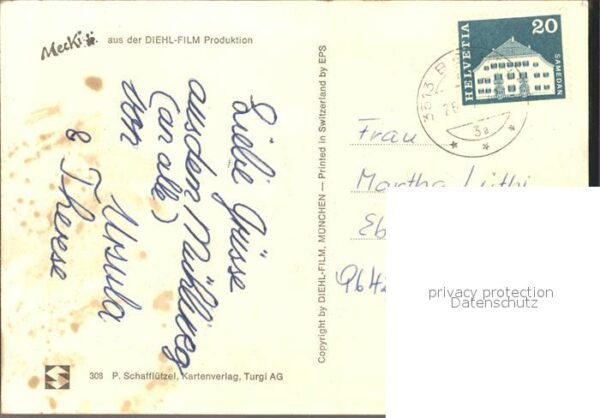 Mecki
aus der DIEHL-FILM Produktion
Liebi Grüsse
aus dem Mühliweg
(an alle)
von
Ursula
& Therese
308 P. Schafflützel, Kartenverlag, Turgi AG
Copyright by DIEHL-FILM, MÜNCHEN — Printed in Switzerland by EPS
HELVETIA
20
SAMEDAN
3a
Frau
Martha Lüthi
privacy protection
Datenschutz